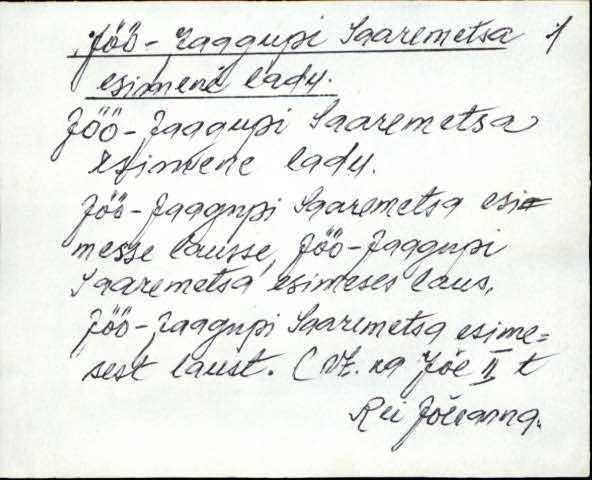 Jöö-Jaagupi Saaremetsa 1
esimene ladu.
Jöö-Jaagupi Saaremetsa
esimene ladu.
Jöö-Jaagupi Saaremetsa esi=
messe lausse, Jöö-Jaagupi
Saaremetsa esimeses laus,
Jöö-Jaagupi Saaremetsa esime=
sest laust. (Vt. ka Jõe II t
Rei Jõeranna.